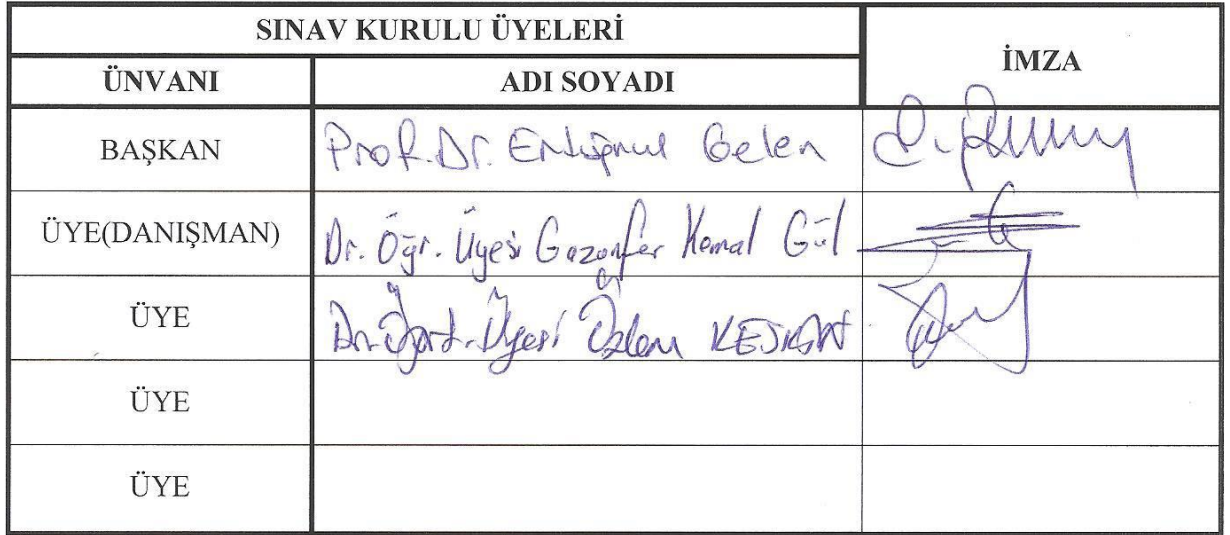 SINAV KURULU ÜYELERİ
İMZA
ÜNVANI ADI SOYADI
BAŞKAN Prof. Dr. Ertuğrul Gelen
ÜYE(DANIŞMAN) Dr. Öğr. Üyesi Gazanfer Kemal Gül
ÜYE Dr. Öğrt. Üyesi Özlem KESKİN
ÜYE
ÜYE